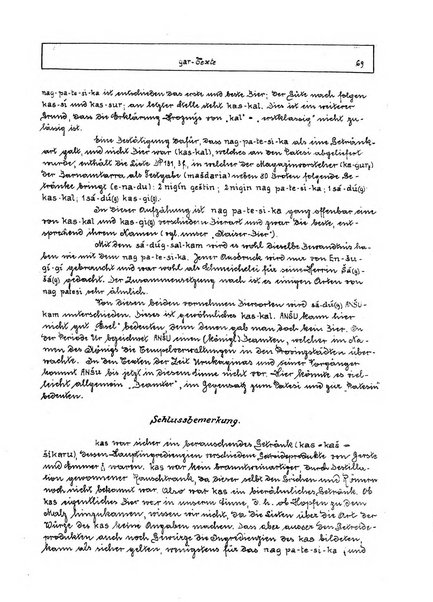 gar-Texte 69
nag-pa-te-si-ka ist entschieden das erste und beste Bier; der Güte nach folgen
kas-si und kas-sur; an letzter Stelle steht kas-kal. Dies ist ein weiterer
Grund, dass die Erklärung Hrozný's von „kal" = „erstklassig" nicht zu-
lässig ist.
Eine Bestätigung dafür, dass nag-pa-te-si-ka als eine Getränk-
art galt, und nicht Bier war (kas-kal), welches an den Patesi abgeliefert
wurde, enthält die Liste 31, in welcher der Magazinvorsteher (ka-gur)
der Barnamtarra als Festgabe (mašdaria) neben 80 Broten folgende Ge-
tränke bringt (e-na-du): 2 nigin geštin; 2 nigin nag pa-te-si-ka; 1 sá-dú(g)
kas-kal; 1 sá-dú(g) kas-gi(g).
In dieser Aufzählung ist nag pa-te-si-ka ganz offenbar eine
von kas-kal und kas-gi(g) verschiedene Bierart und zwar die beste, ent-
sprechend ihrem Namen (vgl. unser „Kaiser-Bier").
Mit dem sá-dúg-sal-kam wird es wohl dieselbe Bewandtnis ha-
ben wie mit dem nag pa-te-si-ka. Jener Ausdruck wird nur von En-šu-
gí-gí gebraucht und war wohl als Schmeichelei für seine Herrin Šá(g)-
šá(g) gedacht. Der Zusammensetzung nach ist es einigen Arten von
nag patesi sehr ähnlich.
Von diesen beiden vornehmen Bierarten wird sá-dú(g) ANŠU-
kam unterschieden. Dieses ist gewöhnliches kas-kal. ANŠU kann hier
nicht gut „Esel" bedeuten, denn denen gab man doch kein Bier. In
der Periode Ur bezeichnet ANŠU einen (Königl.) Beamten, welcher im Na-
men des Königs die Tempelverwaltungen in den Provinzstädten über-
wachte. In den Texten der Zeit Urukaginas und seiner Vorgänger
kommt ANŠU bis jetzt in diesem Sinne nicht vor. Hier könnte es viel-
leicht allgemein „Beamter", im Gegensatz zum Patesi und zur Patesin
bedeuten.
Schlussbemerkung.
kas war sicher ein berauschendes Getränk (kas = kaš =
šikaru), dessen Hauptingredienzien verschiedene Getreideprodukte von Gerste
und Emmer waren. kas war kein branntweinartiger, durch Destilla-
tion gewonnener Rauschtrank, da dieser selbst den Griechen und Römern
noch nicht bekannt war. Also war kas ein bierähnliches Getränk. Ob
kas eigentliches Bier war in unserm Sinne, d. h. ob Hopfen zu dem
Malz hinzukamen, wissen wir nicht, da die Listen über die Art der
Würze des kas keine Angaben machen. Dass aber ausser den Getreide-
produkten auch noch Gewürze die Ingredienzien des kas bildeten,
kann als sicher gelten, wenigstens für das nag pa-te-si-ka; und